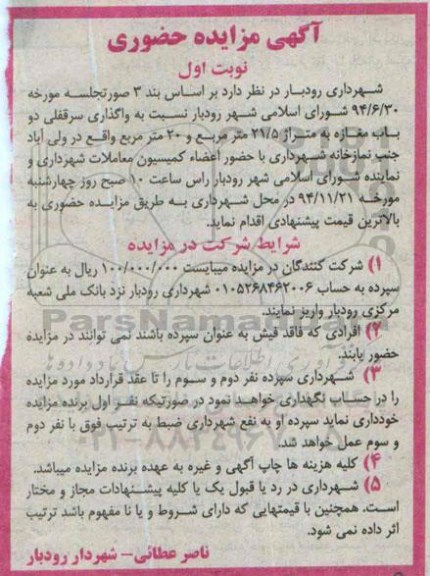 آگهی مزایده حضوری
نوبت اول
شهرداری رودبار در نظر دارد بر اساس بند ۳ صورتجلسه مورخه
۹۴/۶/۳۰ شورای اسلامی شهر رودبار نسبت به واگذاری سرقفلی دو
باب مغازه به متراژ ۲۱/۵ متر مربع و ۲۰ متر مربع واقع در ولی آباد
جنب نمازخانه شهرداری با حضور اعضاء کمیسیون معاملات شهرداری و
نماینده شورای اسلامی شهر رودبار راس ساعت ۱۰ صبح روز چهارشنبه
مورخه ۹۴/۱۱/۲۱ در محل شهرداری به طریق مزایده حضوری به
بالاترین قیمت پیشنهادی اقدام نماید.
شرایط شرکت در مزایده
۱) شرکت کنندگان در مزایده میبایست ۱۰۰/۰۰۰/۰۰۰ ریال به عنوان
سپرده به حساب ۰۱۰۵۲۶۸۴۶۲۰۰۶ شهرداری رودبار نزد بانک ملی شعبه
مرکزی رودبار واریز نمایند.
ParsNamadData
۲) افرادی که فاقد فیش به عنوان سپرده باشند نمی توانند در مزایده
حضور یابند.
۳) شهرداری سپرده نفر دوم و سوم را تا عقد قرارداد مورد مزایده
را در حساب نگهداری خواهد نمود در صورتیکه نفر اول برنده مزایده
خودداری نماید سپرده او به نفع شهرداری ضبط به ترتیب فوق با نفر دوم
و سوم عمل خواهد شد.
۴) کلیه هزینه ها چاپ آگهی و غیره به عهده برنده مزایده میباشد.
۵) شهرداری در رد یا قبول یک یا کلیه پیشنهادات مجاز و مختار
است. همچنین با قیمتهایی که دارای شروط و یا نا مفهوم باشد ترتیب
اثر داده نمی شود.
ناصر عطائی- شهردار رودبار